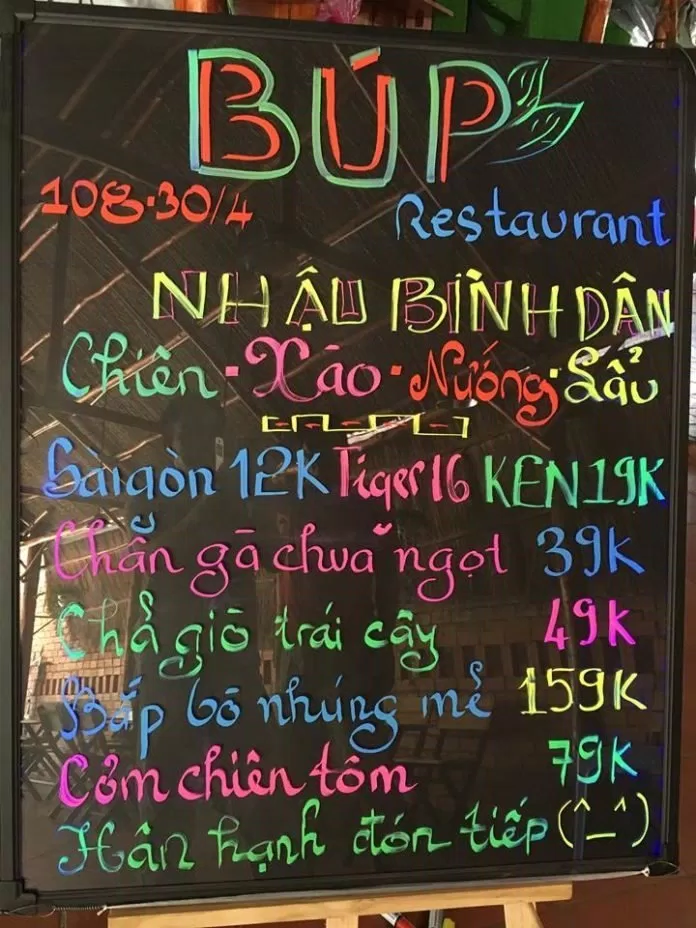 BÚP
108.30/4 Restaurant
NHẬU BÌNH DÂN
Chiên - Xào - Nướng - Lẩu
Sàigòn 12K Tiger 16 KEN 19K
Chân gà chua ngọt 39K
Chả giò trái cây 49K
Bắp bò nhúng mẻ 159K
Cơm chiên tôm 79K
Hân hạnh đón tiếp (^_^)